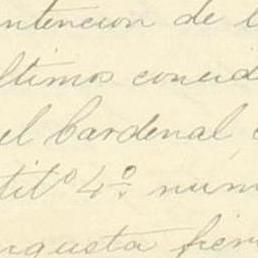 ntencion de l
ltimos concid
el Cardenal
tit.º 4.º num
ngusta